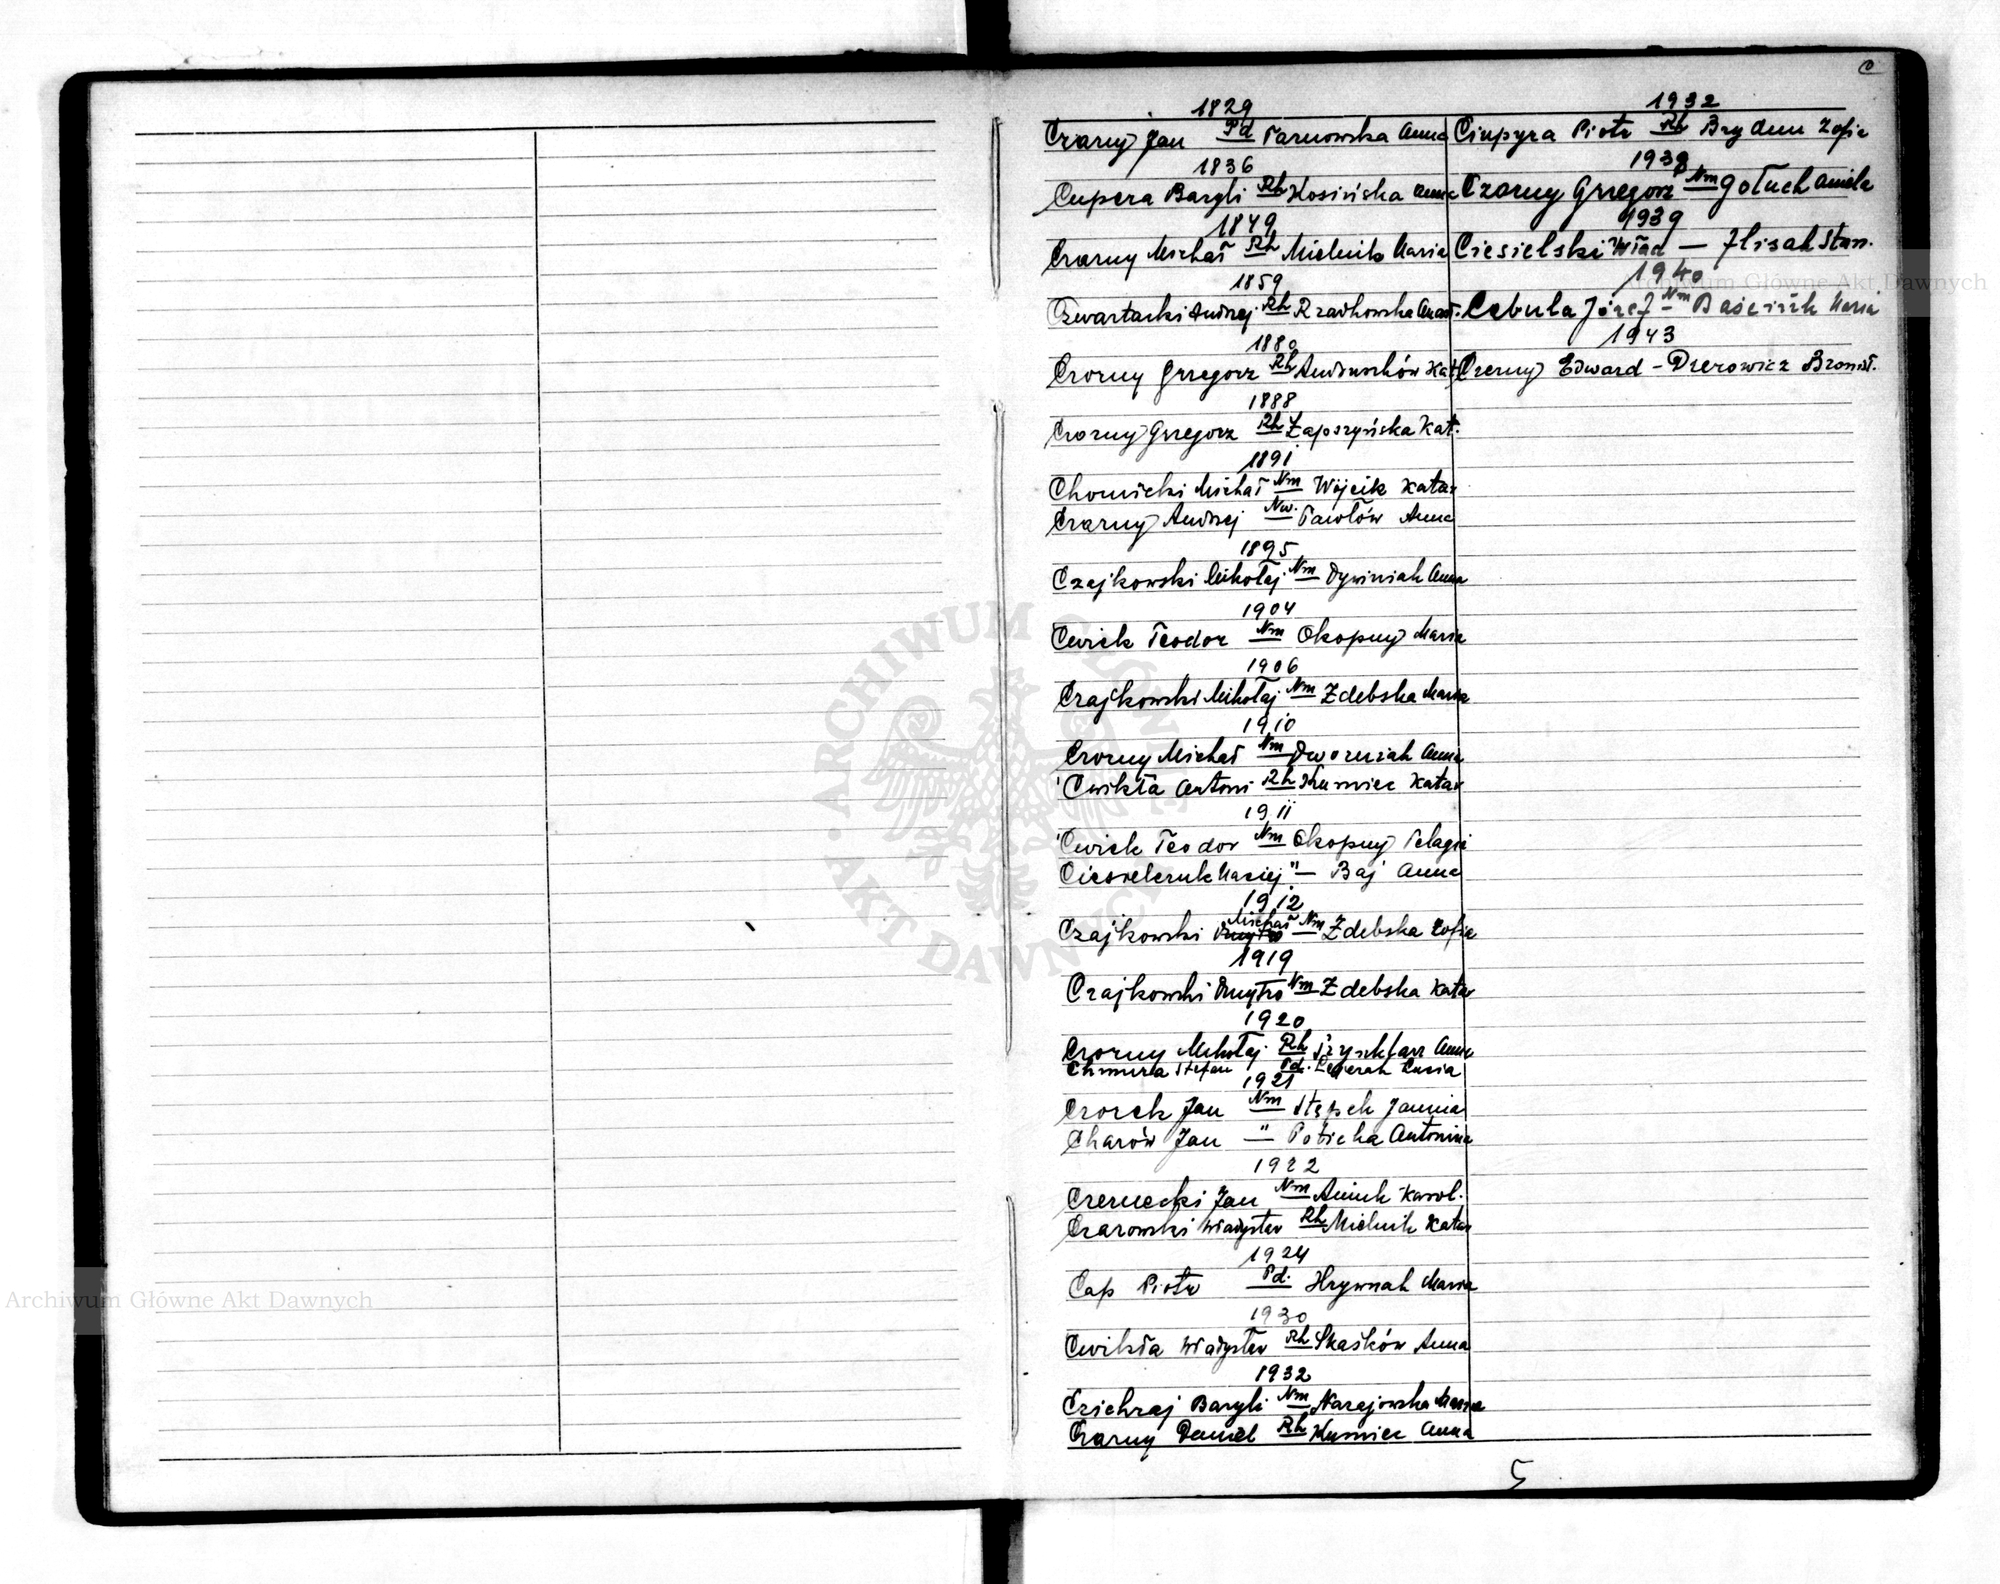 C
1829
Czarny Jan Pd Tarnowska Anna
1836
Cupera Baryli Rh Kosińska Anna
1849
Czarny Michał Rh Mielnik Maria
1859
Czwartacki Andrzej Rh Rzadkowska Anast.
1880
Czorny Grzegorz Rh Andruchów Kat
1888
Czorny Grzegorz Rh Zapszyńska Kat.
1891
Chomicki Michał Nm Wójcik Katar
Czarny Andrzej Nw. Pawłów Anna
1895
Czajkowski Mikołaj Nm Dywiniak Anna
1904
Cwiek Teodor Nm Okopny Maria
1906
Czajkowski Mikołaj Nm Zdebska Maria
1910
Czorny Michał Nm Dworniak Anna
Cwikła Antoni Rh Kurniec Katar
1911
Cwiek Teodor Nm Okopny Pelagia
Ciesielczuk Maciej " — Baj Anna
1912
Czajkowski Michał Nm Zdebska Zofia
1919
Czajkowski Dmytro Nm Zdebska Katar
1920
Czorny Mikołaj Rh Anna
Chmura Stefan Pd. Łucia
1921
Czorek Jan Nm Stępek Jannia
Charów Jan — " Poticha Antonina
1922
Czernecki Jan Nm Karol.
Czarowski Władysław Rh Mielnik Katar
1924
Cap Piotr Pd. Hrywnak Maria
1930
Cwikła Władysław Rh Skaśków Anna
1932
Czichraj Baryli Nm Narajowska Maria
Czarny Daniel Rh Kurniec Anna
1932
Ciupyra Piotr Rh Brydun Zofia
1938
Czorny Grzegorz Nm Gołuch Aniela
1939
Ciesielski Wład — Flisak Stan.
1940
Cebula Józef Nm Maria
1943
Czerny Edward - Dzerowicz Bronisł.
5
ARCHIWUM GŁÓWNE AKT DAWNYCH
Archiwum Główne Akt Dawnych
Archiwum Główne Akt Dawnych